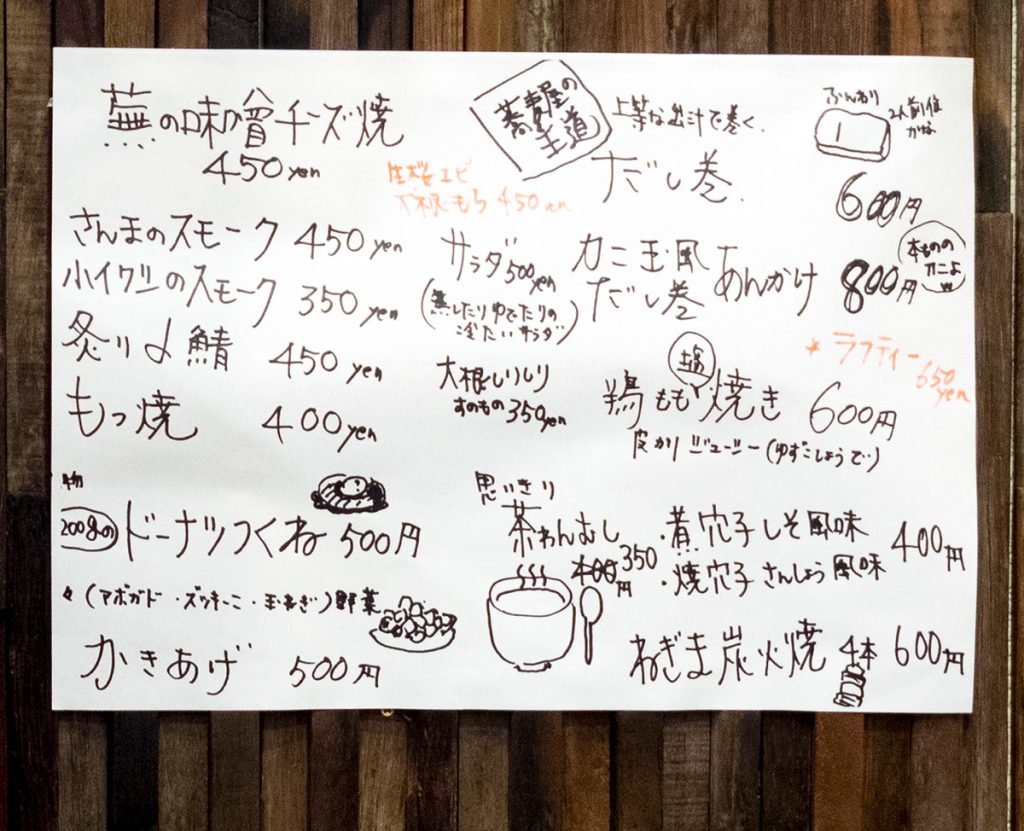 蕪の味噌チーズ焼
450yen
さんまのスモーク 450yen
小イワシのスモーク 350yen
炙り〆鯖 450yen
もつ焼 400yen
200gの
ドーナツつくね 500円
(アボガド・ズッキーニ・玉ねぎ)野菜
かきあげ 500円
生桜エビ
大根もち 450yen
サラダ 500yen
(蒸したりゆでたりの
冷たいサラダ)
大根しりしり
すのもの 350yen
思いきり
茶わんむし
400 350
円
蕎麦屋の
王道
上等な出汁で巻く。
だし巻
ふんわり
2人前位
かな
600円
カニ玉風
だし巻
あんかけ 800円
本ものの
カニよ
★ラフティー
650
yen
鶏もも塩焼き 600円
皮カリ ジューシー(ゆずこしょうで)
・煮穴子しそ風味 400円
・焼穴子さんしょう風味
ねぎま炭火焼 4本 600円